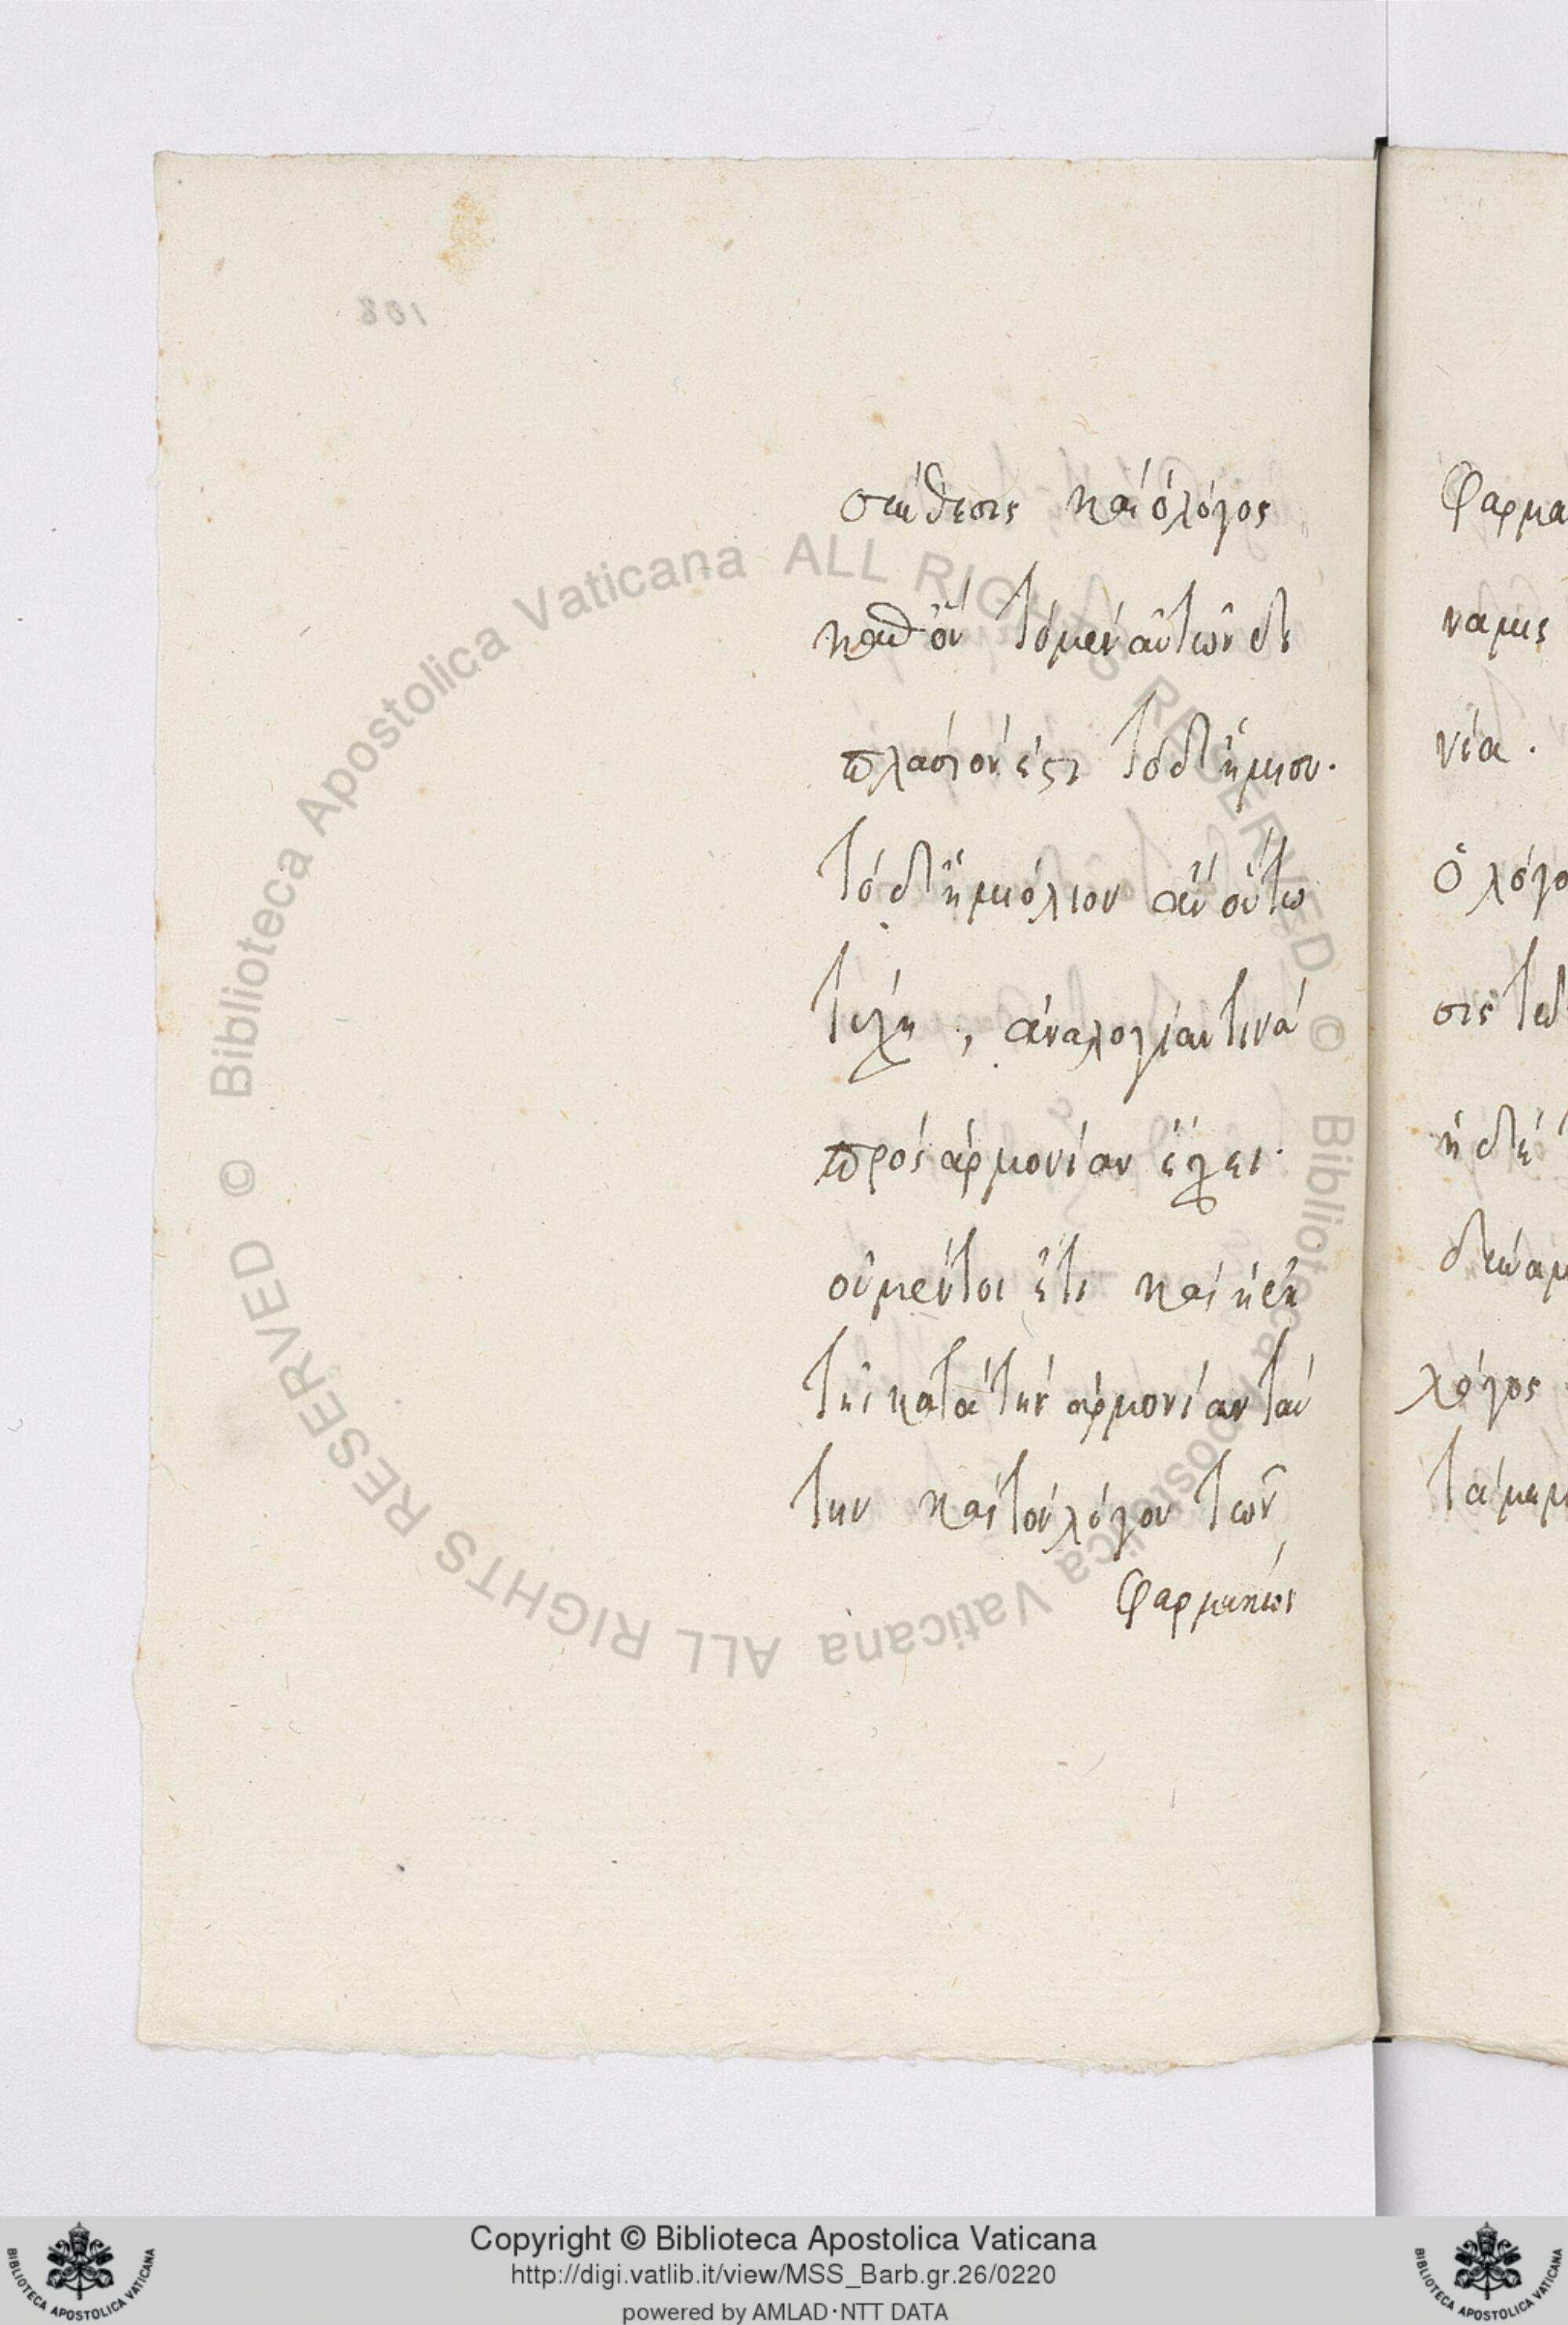 108
σύνθεσις καὶ ὁ λόγος
καθ' ὃν τὸ μὲν αὐτῶν δι
πλάσιόν ἐστι τὸ δ' ἥμισυ·
τὸ δ' ἡμιόλιον ἂν οὕτω
τύχη, ἀναλογίαν τινὰ
πρὸς ἁρμονίαν ἔχει·
οὐ μέντοι ἔτι καὶ ἡ ἐν
τῆι κατὰ τὴν ἁρμονίαν ταύ
την καὶ τὸν λόγον τῶν
φαρμάκων
Φαρμα
ναμις
νία.
ὁ λόγο
σις τεδ
ἡ δὲ
δυναμ
λόγος
τα μεμ
Biblioteca Apostolica Vaticana ALL RIGHTS RESERVED ©
Biblioteca Apostolica Vaticana ALL RIGHTS RESERVED ©
Copyright © Biblioteca Apostolica Vaticana
http://digi.vatlib.it/view/MSS_Barb.gr.26/0220
powered by AMLAD·NTT DATA
BIBLIOTECA APOSTOLICA VATICANA
BIBLIOTECA APOSTOLICA VATICANA